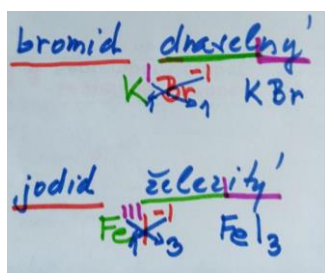 bromid draselný
K I Br -I 1 KBr
jodid železitý
Fe III 1 I -I 3 FeI3